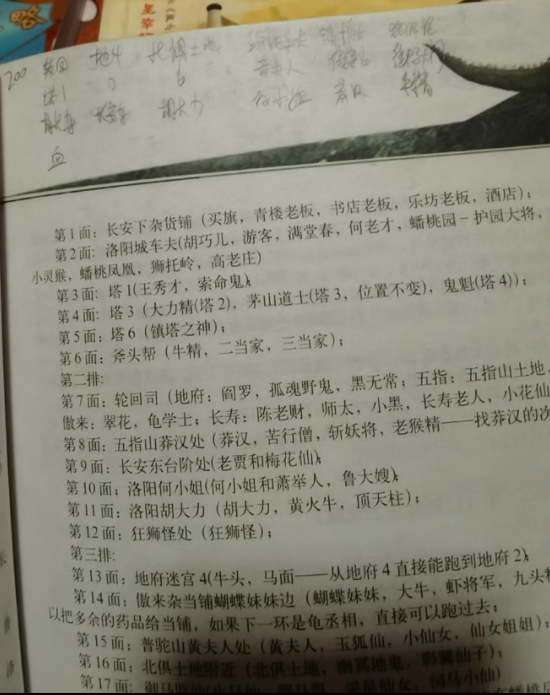 200
塔1
6
胡大力
第1面：长安下杂货铺（买旗，青楼老板，书店老板，乐坊老板，酒店）；
第2面：洛阳城车夫(胡巧儿，游客，满堂春，何老才，蟠桃园-护园大将，
小灵猴，蟠桃凤凰，狮托岭，高老庄）
第3面：塔1(王秀才，索命鬼)；
第4面：塔3（大力精(塔2)，茅山道士(塔3，位置不变)，鬼魁(塔4)）；
第5面：塔6（镇塔之神）；
第6面：斧头帮（牛精，二当家，三当家）；
第二排：
第7面：轮回司（地府：阎罗，孤魂野鬼，黑无常；五指：五指山土地，
傲来：翠花，龟学士；长寿：陈老财，师太，小黑，长寿老人，小花仙
第8面：五指山莽汉处（莽汉，苦行僧，斩妖将，老猴精——找莽汉的次
第9面：长安东台阶处(老贾和梅花仙)；
第10面：洛阳何小姐(何小姐和萧举人，鲁大嫂)；
第11面：洛阳胡大力（胡大力，黄火牛，顶天柱）；
第12面：狂狮怪处（狂狮怪）；
第三排：
第13面：地府迷宫4(牛头，马面——从地府4直接能跑到地府2)；
第14面：傲来杂当铺蝴蝶妹妹边（蝴蝶妹妹，大牛，虾将军，九头
以把多余的药品给当铺，如果下一环是龟丞相，直接可以跑过去；
第15面：普驼山黄夫人处（黄夫人，玉狐仙，小仙女，仙女姐姐）；
第16面：北俱土地附近（北俱土地，幽冥地鬼，彩翼仙子）；
第17面：